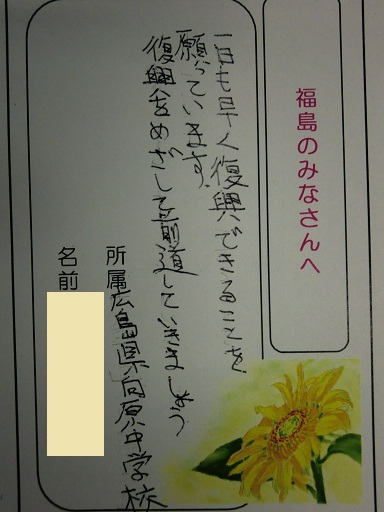 福島のみなさんへ
一日も早く復興できることを
願っています。
復興をめざして前進していきましょう
所属 広島県向原中学校
名前